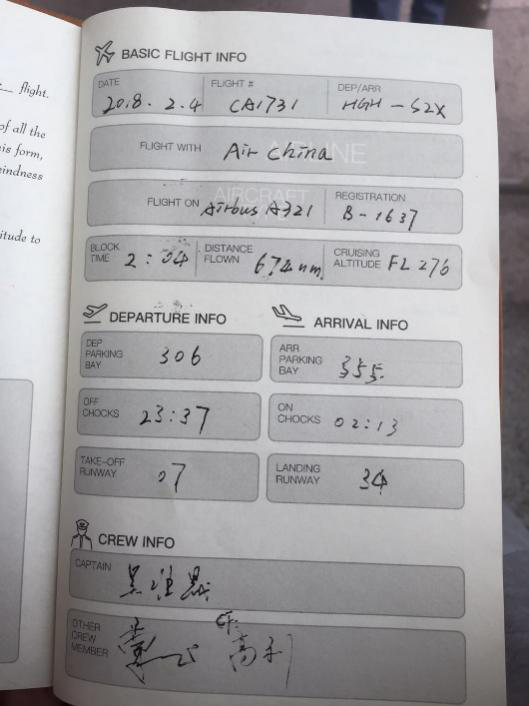 flight.
of all the
is form,
eindness
itude to
BASIC FLIGHT INFO
DATE FLIGHT # DEP/ARR
2018.2.4 CA1731 HGH - SZX
FLIGHT WITH Air China
FLIGHT ON Airbus A321 REGISTRATION
B-1637
BLOCK TIME 2:04 DISTANCE FLOWN 674nm CRUISING ALTITUDE FL276
DEPARTURE INFO ARRIVAL INFO
DEP PARKING BAY 306 ARR PARKING BAY 355
OFF CHOCKS 23:37 ON CHOCKS 02:13
TAKE-OFF RUNWAY 07 LANDING RUNWAY 34
CREW INFO
CAPTAIN
OTHER CREW MEMBER